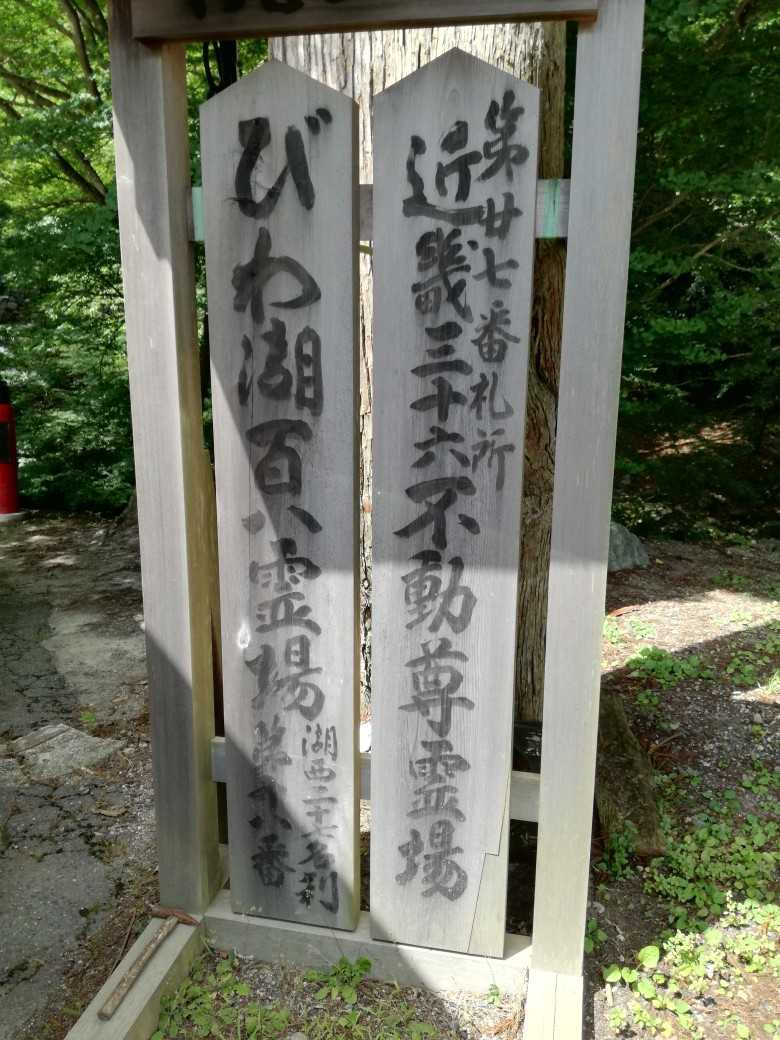 第廿七番札所
近畿三十六不動尊霊場
びわ湖百八霊場
湖西二十七名刹
第十八番